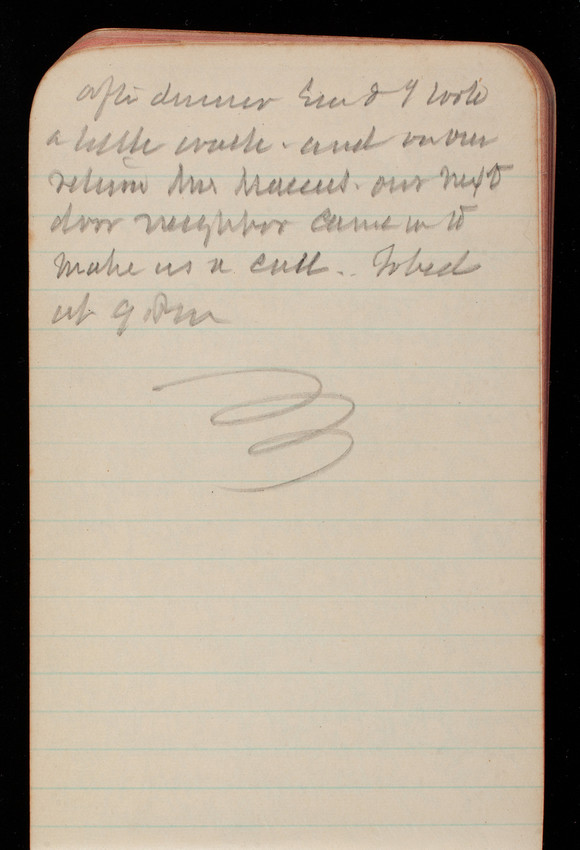 after dinner Em & I took
a little walk. and on our
return Mrs our next
door neighbor came in to
make us a call.. To bed
at 9 P.m